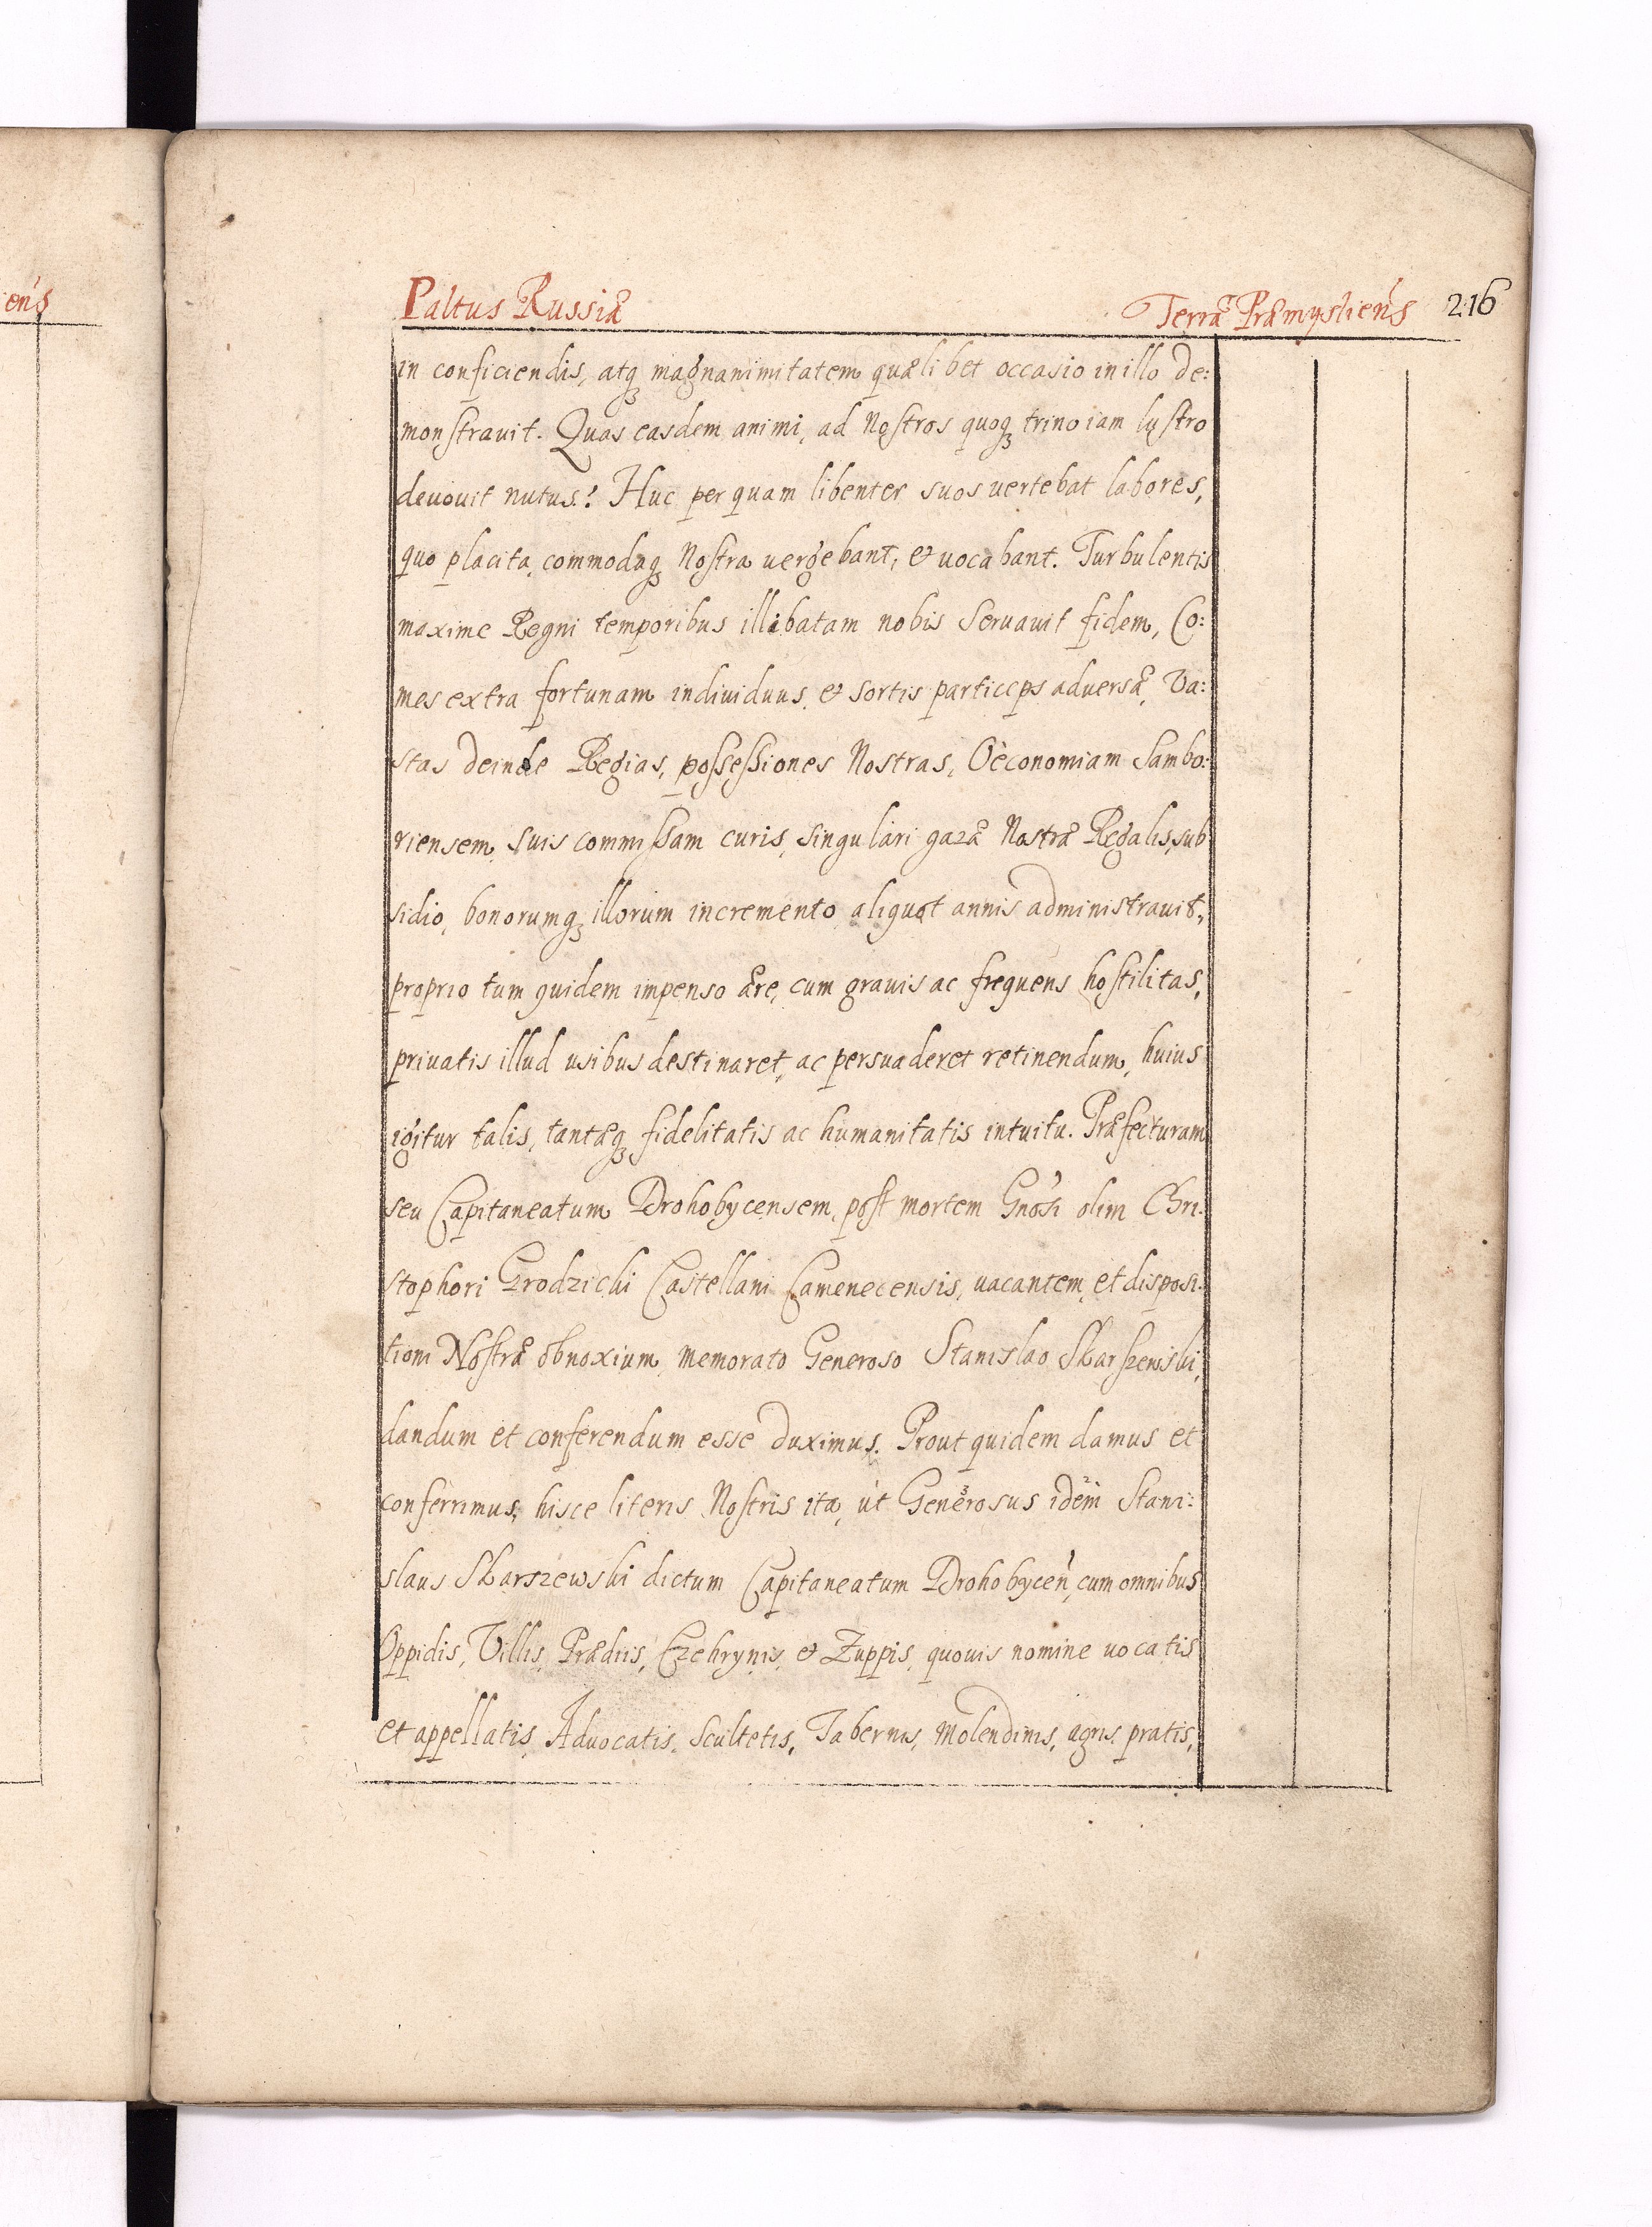 iens
Paltus Russiæ
Terræ Præmysliens 216
in conficiendis, atq₃ magnanimitatem quælibet occasio in illo de:
monstrauit. Quas easdem animi, ad Nostros quoq₃ trino iam lustro
deuouit nutus.? Huc perquam libenter suos vertebat labores,
quo placita, commodaq₃ Nostra uergebant, & uocabant. Turbulentis
maxime Regni temporibus illibatam nobis Seruauit fidem, Co:
mes extra fortunam indiuiduus, & sortis particeps aduersæ, Va:
stas deinde Regias, possessiones Nostras, Oeconomiam Sambo:
riensem, suis commissam curis, singulari gazæ Nostræ Regalis, sub
sidio, bonorumq₃ illorum incremento aliquot annis administrauit,
proprio tum quidem impenso ære, cum grauis ac frequens hostilitas,
priuatis illud usibus destinaret, ac persuaderet retinendum, huius
igitur talis, tantæq₃ fidelitatis ac humanitatis intuitu. Præfecturam
seu Capitaneatum Drohobycensem, post mortem Gnosi olim Chri:
stophori Grodzicki Castellani Camenecensis, uacantem, et disposi:
tioni Nostræ obnoxium, memorato Generoso Stanislao Skarszewski,
dandum et conferendum esse duximus. Prout quidem damus et
conferrimus, hisce literis Nostris ita, út Generosus idem Stani:
slaus Skarszewski dictum Capitaneatum Drohobycen, cum omnibus
Oppidis, Villis, Prædiis, Czehrynis, & Zuppis, quouis nomine uocatis
et appellatis, Aduocatis, Scultetis, Tabernis, Molendinis, agris, pratis,